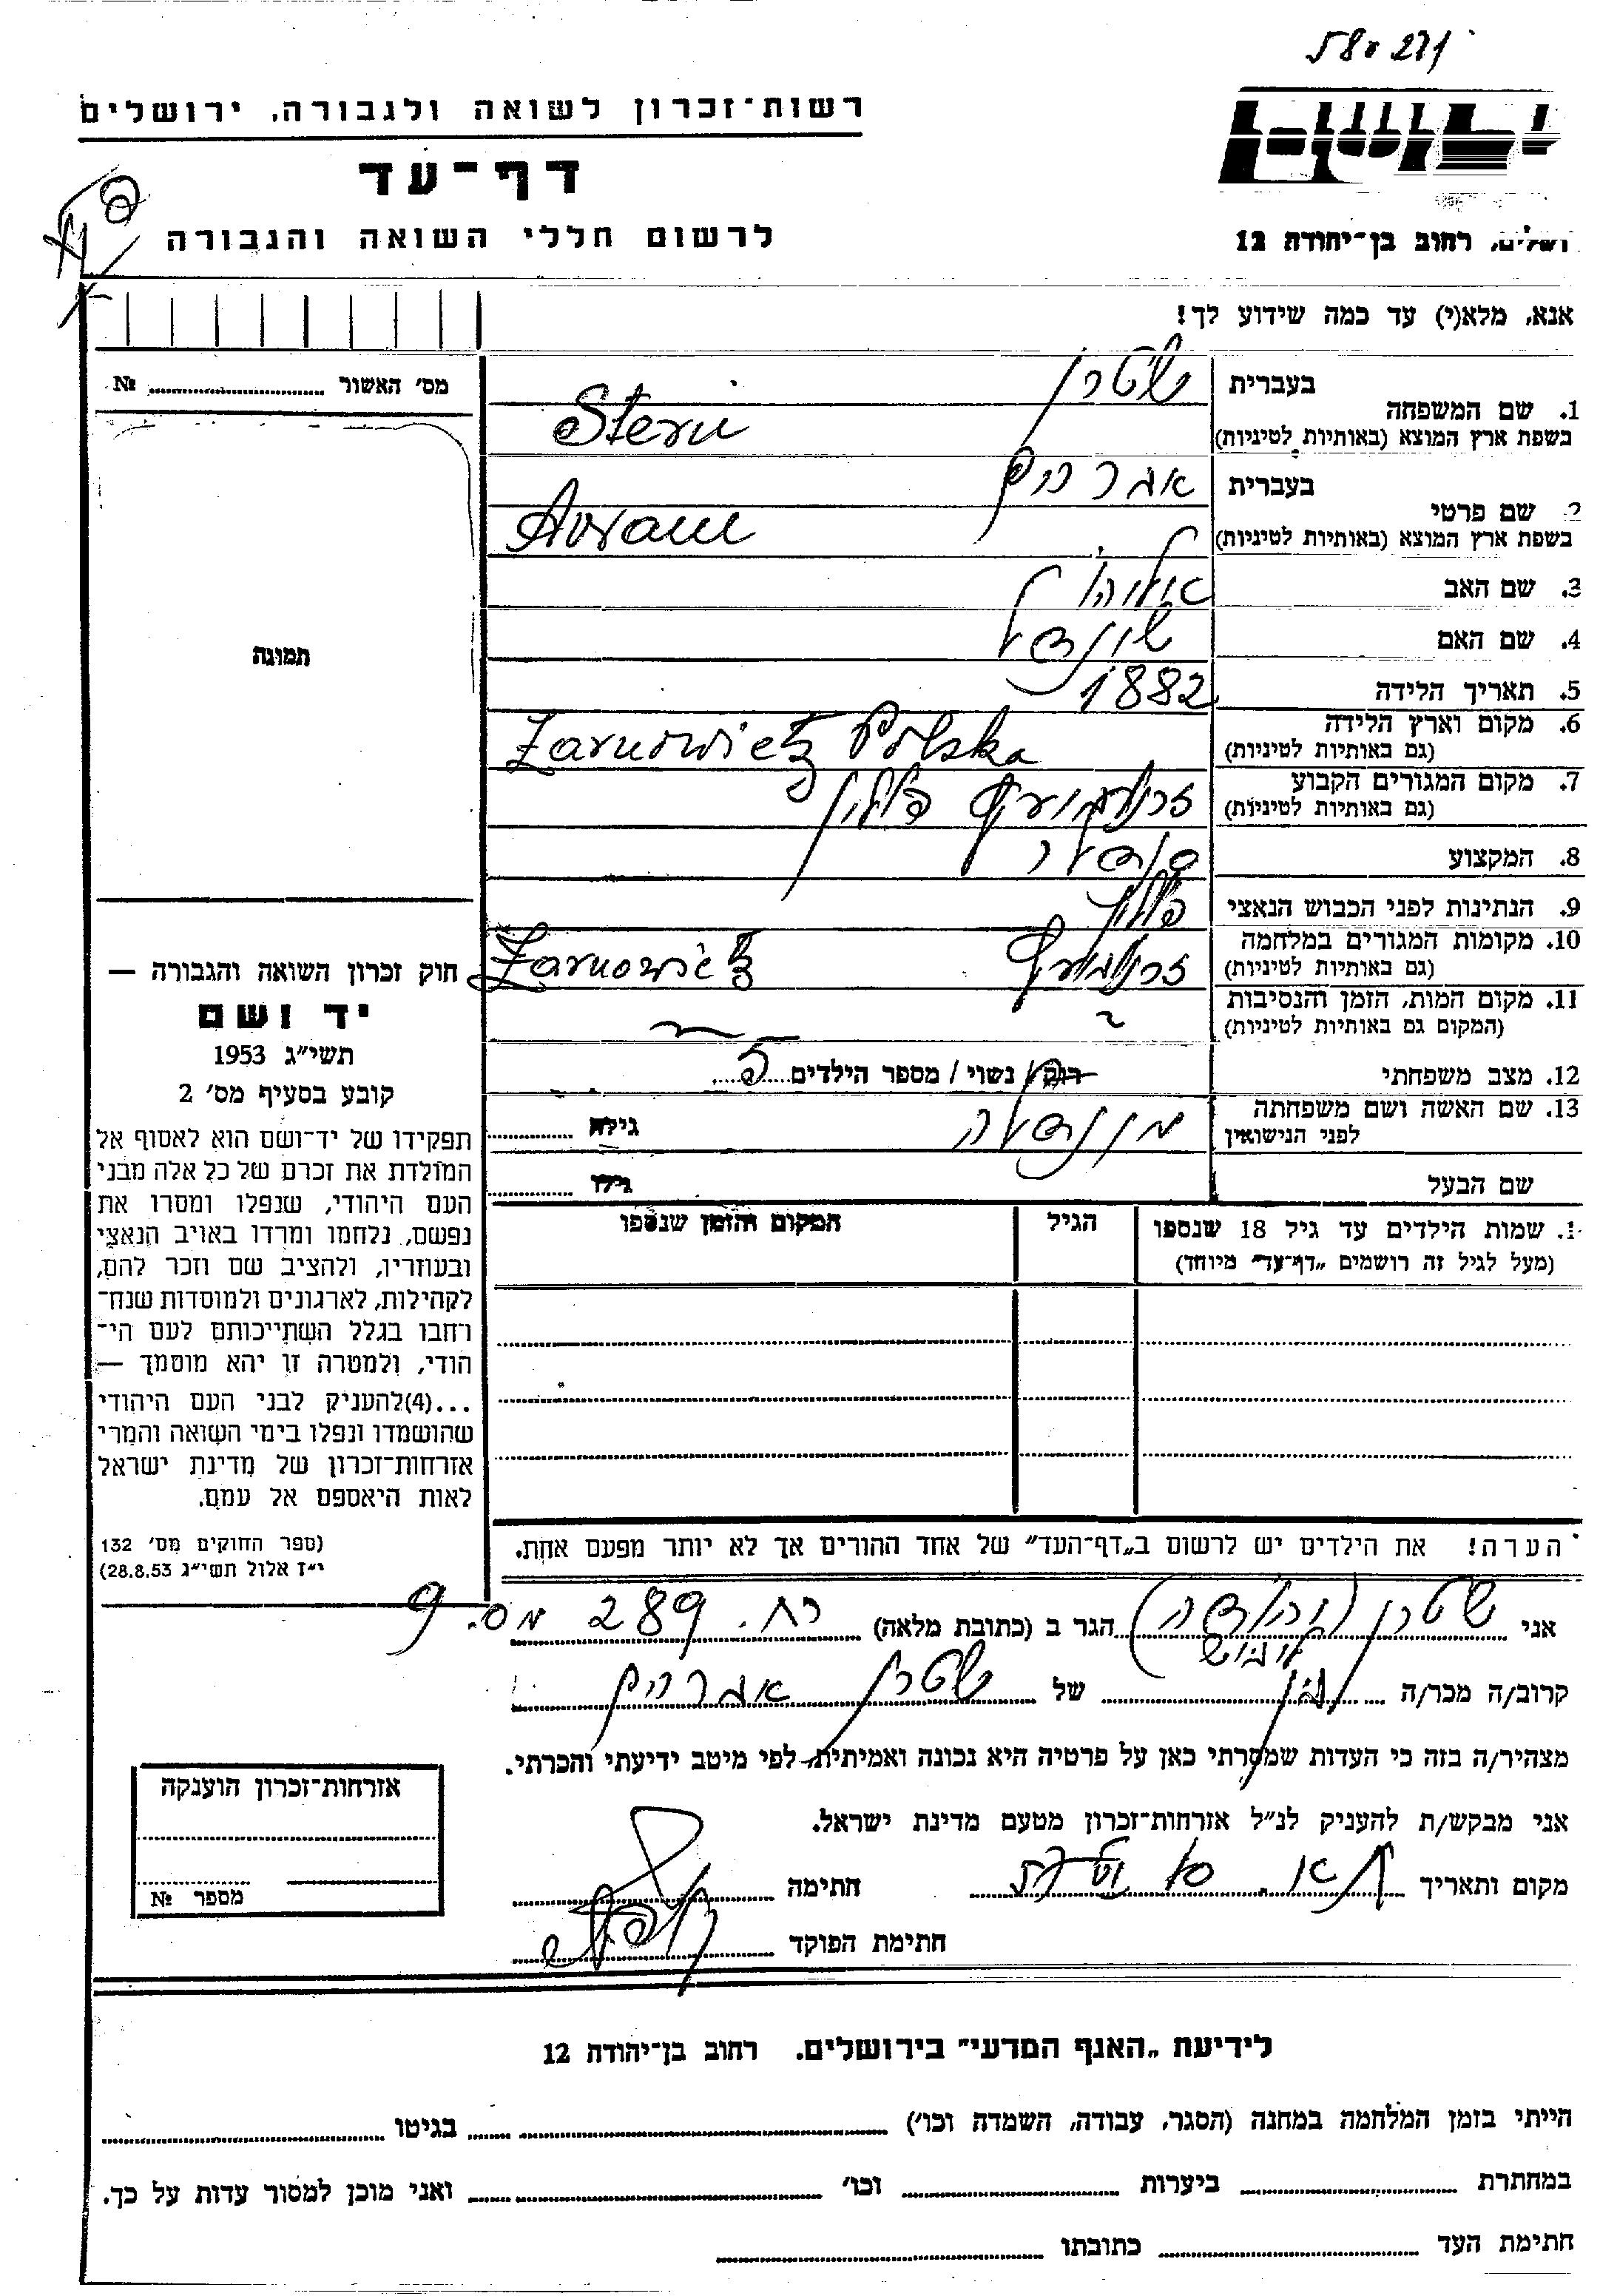 רשות־זכרון לשואה ולגבורה, ירושלים
דף־עד
לרשום חללי השואה והגבורה
רחוב בן־יהודה 12
אנא, מלא(י) עד כמה שידוע לך!
מס' האשור № 
תמונה
בעברית שטרן
1. שם המשפחה
בשפת ארץ המוצא (באותיות לטיניות) Stern
בעברית אברהם
2. שם פרטי
בשפת ארץ המוצא (באותיות לטיניות) Avram
3. שם האב
4. שם האם
5. תאריך הלידה 1882
6. מקום וארץ הלידה
(גם באותיות לטיניות) Zarnowietz Polska
7. מקום המגורים הקבוע
(גם באותיות לטיניות) פולין
8. המקצוע
9. הנתינות לפני הכבוש הנאצי פולין
10. מקומות המגורים במלחמה
(גם באותיות לטיניות) Zarnowietz
11. מקום המות, הזמן והנסיבות
(המקום גם באותיות לטיניות) ?
12. מצב משפחתי רוק/ נשוי / מספר הילדים 5
13. שם האשה ושם משפחתה
לפני הנישואין גילה
שם הבעל גילו
שמות הילדים עד גיל 18 שנספו הגיל המקום והזמן שנספו
(מעל לגיל זה רושמים „דף־עד״ מיוחד)
הערה! את הילדים יש לרשום ב„דף־העד״ של אחד ההורים אך לא יותר מפעם אחת.
חוק זכרון השואה והגבורה —
יד ושם
תשי״ג 1953
קובע בסעיף מס' 2
תפקידו של יד־ושם הוא לאסוף אל
המולדת את זכרם של כל אלה מבני
העם היהודי, שנפלו ומסרו את
נפשם, נלחמו ומרדו באויב הנאצי
ובעוזריו, ולהציב שם וזכר להם,
לקהילות, לארגונים ולמוסדות שנח־
רחבו בגלל השתייכותם לעם הי־
הודי, ולמטרה זו יהא מוסמך —
...(4)להעניק לבני העם היהודי
שהושמדו ונפלו בימי השואה והמרי
אזרחות־זכרון של מדינת ישראל
לאות היאספם אל עמם.
(ספר החוקים מס' 132
י״ז אלול תשי״ג 28.8.53)
אני שטרן הגר ב (כתובת מלאה) רח. 289 מס. 9
קרוב/ה מכר/ה בן של שטרן אברהם
מצהיר/ה בזה כי העדות שמסרתי כאן על פרטיה היא נכונה ואמיתית, לפי מיטב ידיעתי והכרתי.
אני מבקש/ת להעניק לנ״ל אזרחות־זכרון מטעם מדינת ישראל.
מקום ותאריך חתימה
חתימת הפוקד
אזרחות־זכרון הוענקה
מספר №
לידיעת „האגף המדעי״ בירושלים. רחוב בן־יהודה 12
הייתי בזמן המלחמה במחנה (הסגר, עבודה, השמדה וכו') בגיטו
במחתרת ביערות וכו' ואני מוכן למסור עדות על כך.
חתימת העד כתובתו